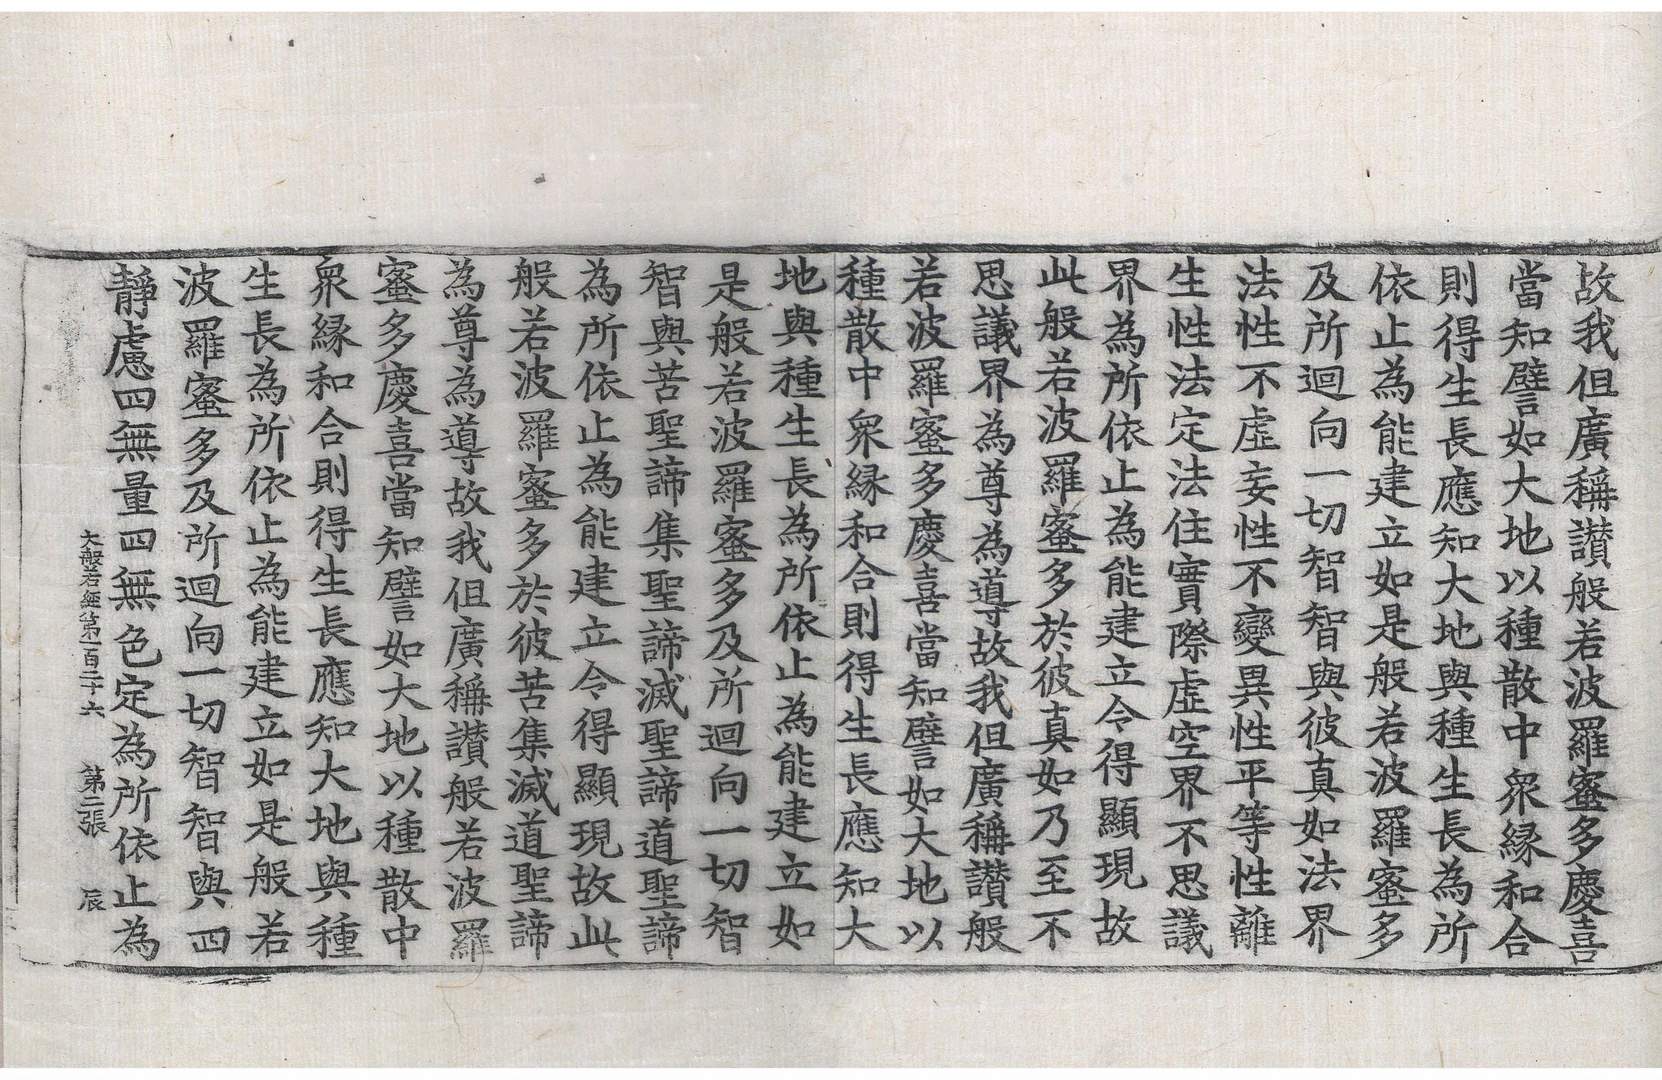 故我但廣稱讃般若波羅蜜多慶喜
當知譬如大地以種散中衆緣和合
則得生長應知大地與種生長為所
依止為能建立如是般若波羅蜜多
及所迴向一切智智與彼真如法界
法性不虛妄性不變異性平等性離
生性法定法住實際虛空界不思議
界為所依止為能建立令得顯現故
此般若波羅蜜多於彼真如乃至不
思議界為尊為導故我但廣稱讃般
若波羅蜜多慶喜當知譬如大地以
種散中衆緣和合則得生長應知大
地與種生長為所依止為能建立如
是般若波羅蜜多及所迴向一切智
智與苦聖諦集聖諦滅聖諦道聖諦
為所依止為能建立令得顯現故此
般若波羅蜜多於彼苦集滅道聖諦
為尊為導故我但廣稱讃般若波羅
蜜多慶喜當知譬如大地以種散中
衆緣和合則得生長應知大地與種
生長為所依止為能建立如是般若
波羅蜜多及所迴向一切智智與四
靜慮四無量四無色定為所依止為
大般若經第一百二十六 第二張 辰